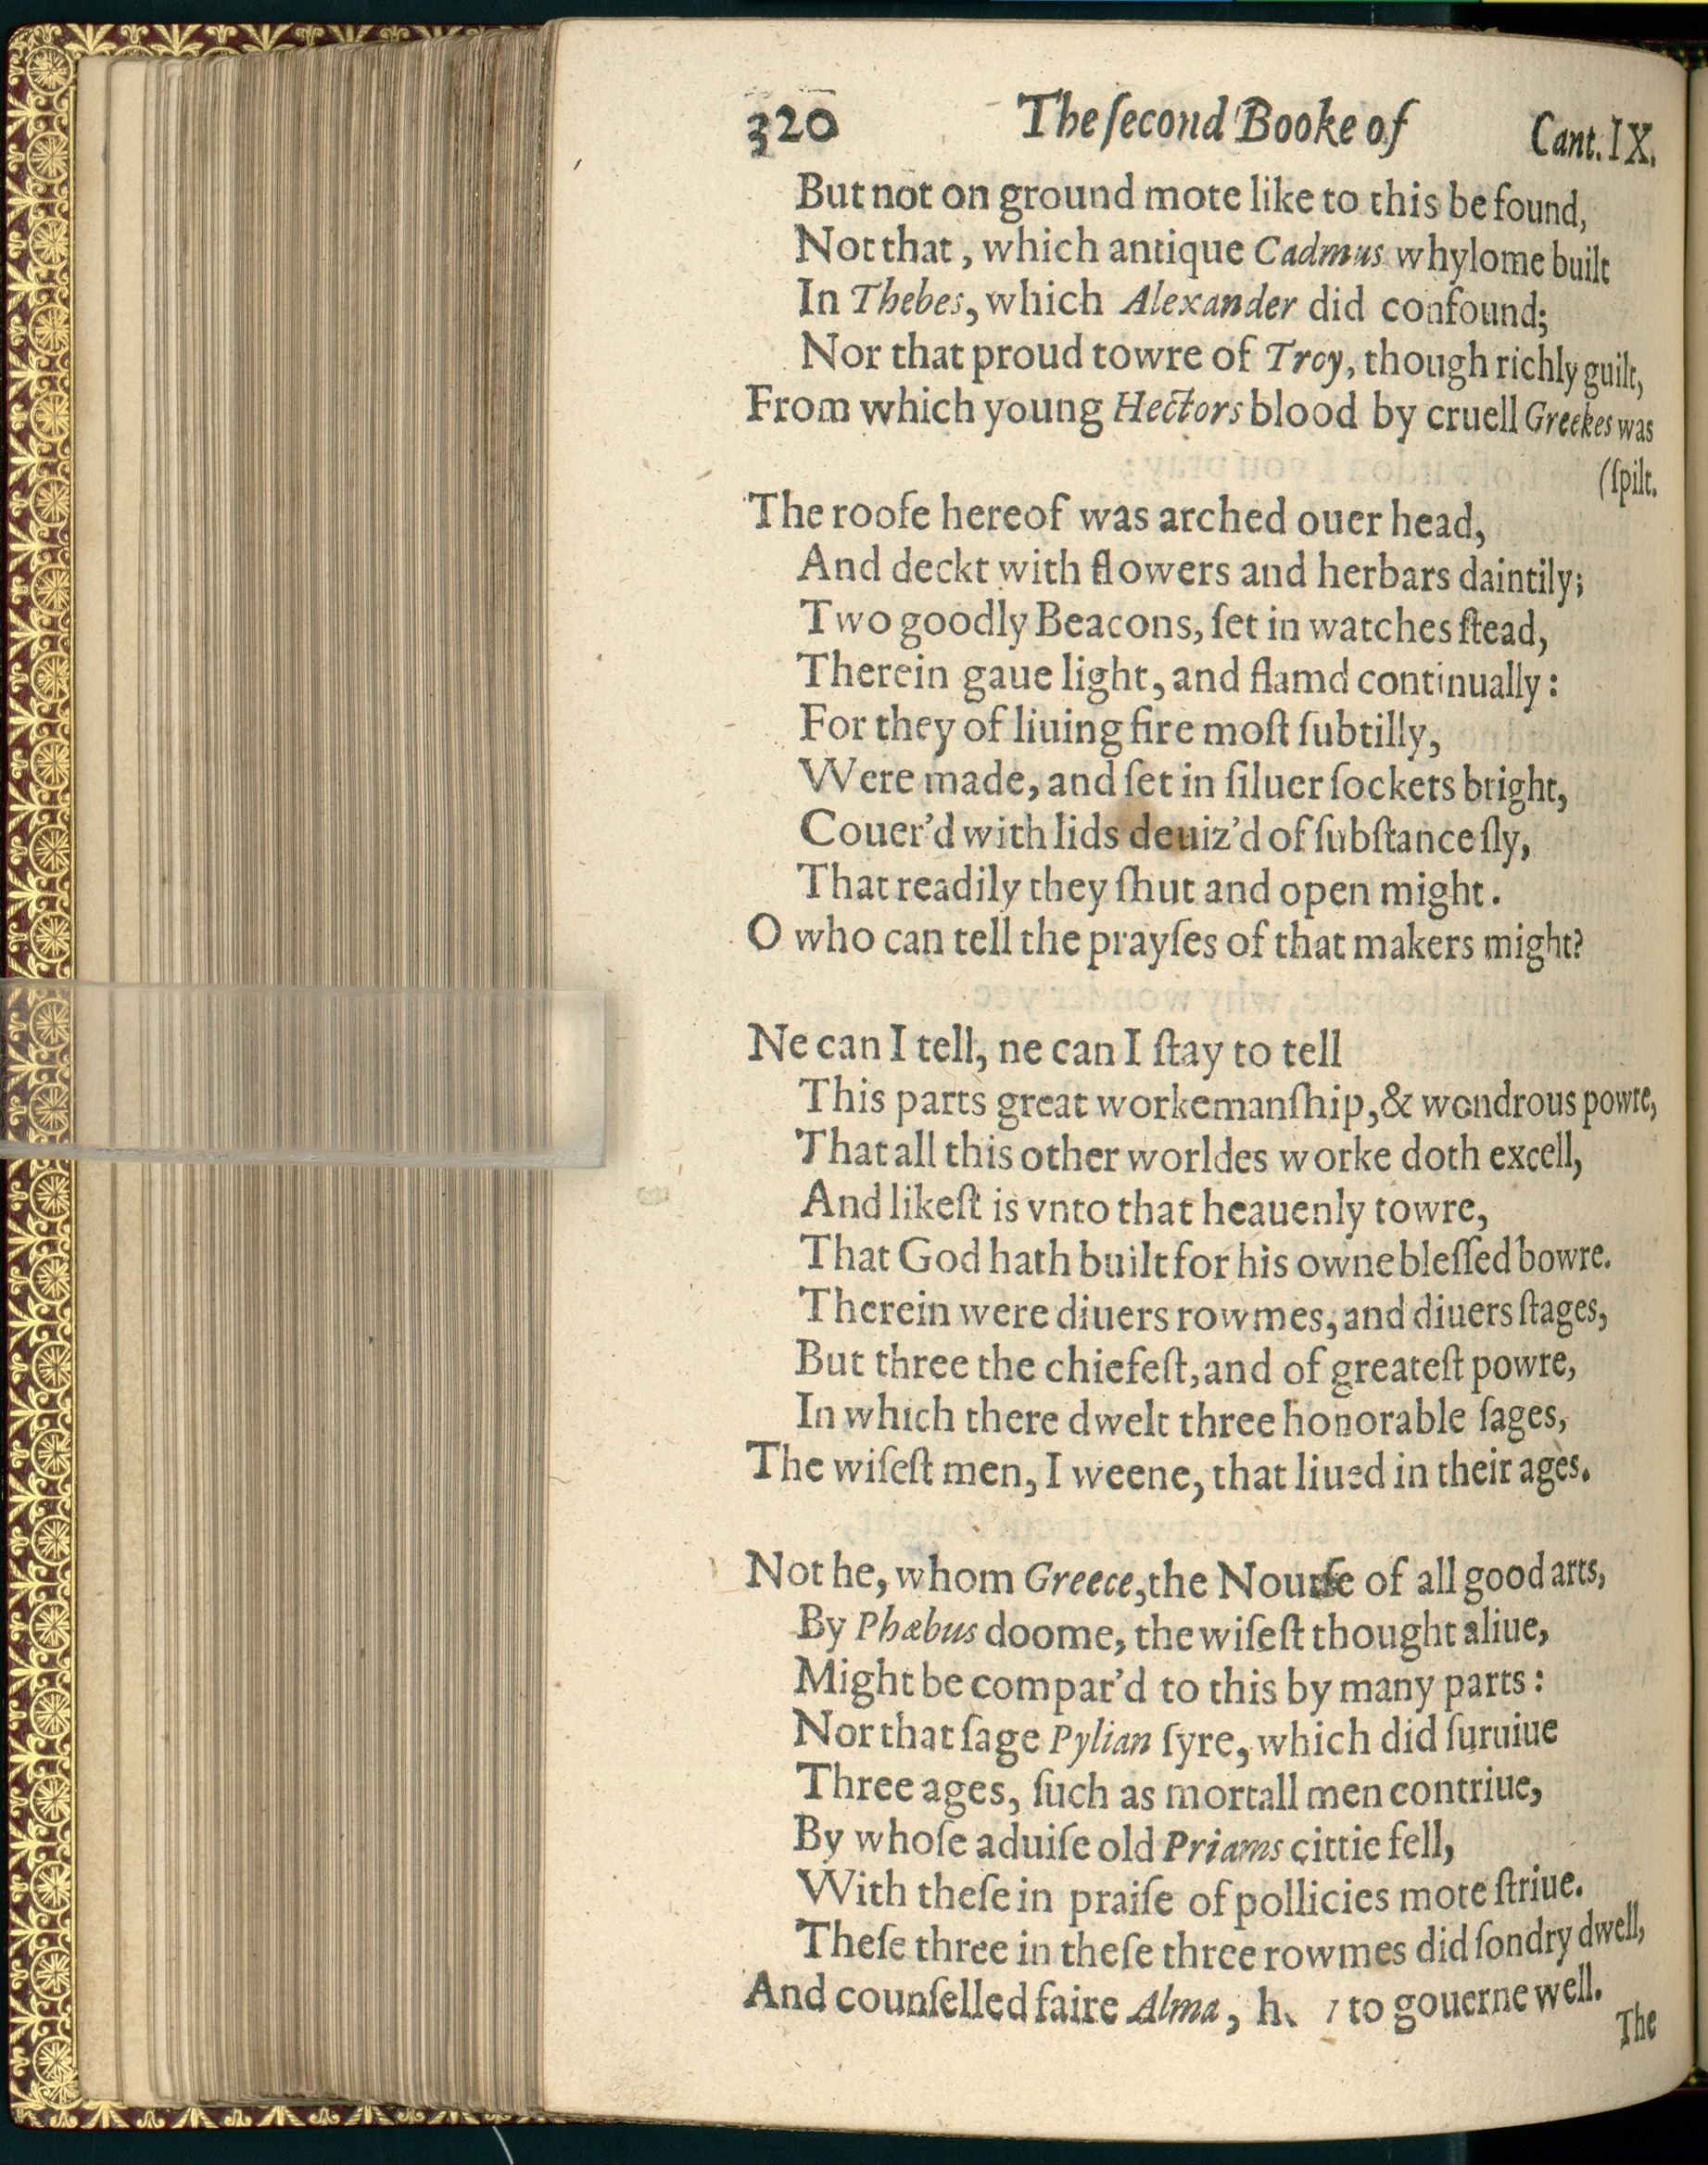 320 The ſecond Booke of Cant. IX.
But not on ground mote like to this be found,
Not that, which antique Cadmus whylome built
In Thebes, which Alexander did confound;
Nor that proud towre of Troy, though richly guilt,
From which young Hectors blood by cruell Greekes was
(ſpilt.
The roofe hereof was arched ouer head,
And deckt with flowers and herbars daintily;
Two goodly Beacons, ſet in watches ſtead,
Therein gaue light, and flamd continually:
For they of liuing fire moſt ſubtilly,
Were made, and ſet in ſiluer ſockets bright,
Couer'd with lids deuiz'd of ſubſtance ſly,
That readily they ſhut and open might.
O who can tell the prayſes of that makers might?
Ne can I tell, ne can I ſtay to tell
This parts great workemanſhip, & wondrous powre,
That all this other worldes worke doth excell,
And likeſt is vnto that heauenly towre,
That God hath built for his owne bleſſed bowre.
Therein were diuers rowmes, and diuers ſtages,
But three the chiefeſt, and of greateſt powre,
In which there dwelt three honorable ſages,
The wiſeſt men, I weene, that liued in their ages.
Not he, whom Greece, the Nourſe of all good arts,
By Phæbus doome, the wiſeſt thought aliue,
Might be compar'd to this by many parts:
Nor that ſage Pylian ſyre, which did ſuruiue
Three ages, ſuch as mortall men contriue,
By whoſe aduiſe old Priams cittie fell,
With theſe in praiſe of pollicies mote ſtriue.
Theſe three in theſe three rowmes did ſondry dwell,
And counſelled faire Alma, to gouerne well.
The